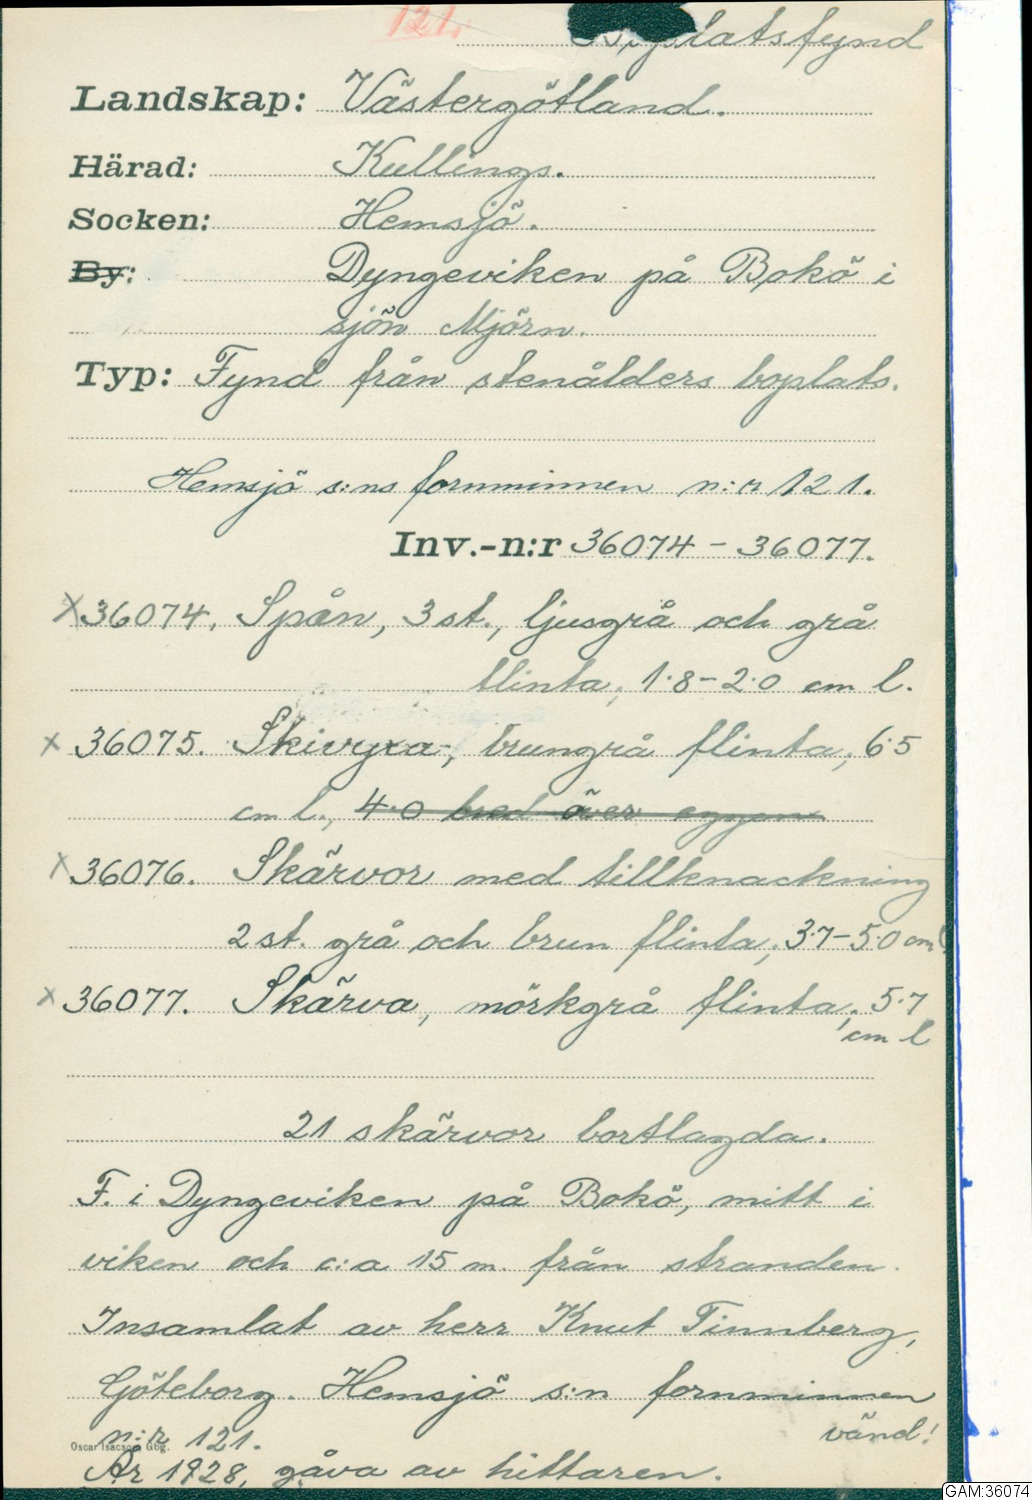 121.
Boplatsfynd
Landskap: Västergötland.
Härad: Kullings.
Socken: Hemsjö.
By: Dyngeviken på Bokö i
sjön Mjörn.
Typ: Fynd från stenålders boplats.
Hemsjö s:ns fornminnen n:r 121.
Inv.-n:r 36074 - 36077.
x 36074. Spån, 3 st., ljusgrå och grå
flinta, 1.8-2.0 cm l.
x 36075. Skivyxa, brungrå flinta, 6.5
cm l., 4.0 bred över eggen
x 36076. Skärvor med tillknackning
2 st. grå och brun flinta, 3.7-5.0 cm l
x 36077. Skärva, mörkgrå flinta, 5.7
cm l
21 skärvor bortlagda.
F. i Dyngeviken på Bokö, mitt i
viken och c:a 15 m. från stranden.
Insamlat av herr Knut Tinnberg,
Göteborg. Hemsjö s:n fornminnen
n:r 121. vänd!
Oscar Isacson Gbg.
År 1928, gåva av hittaren.
GAM:36074